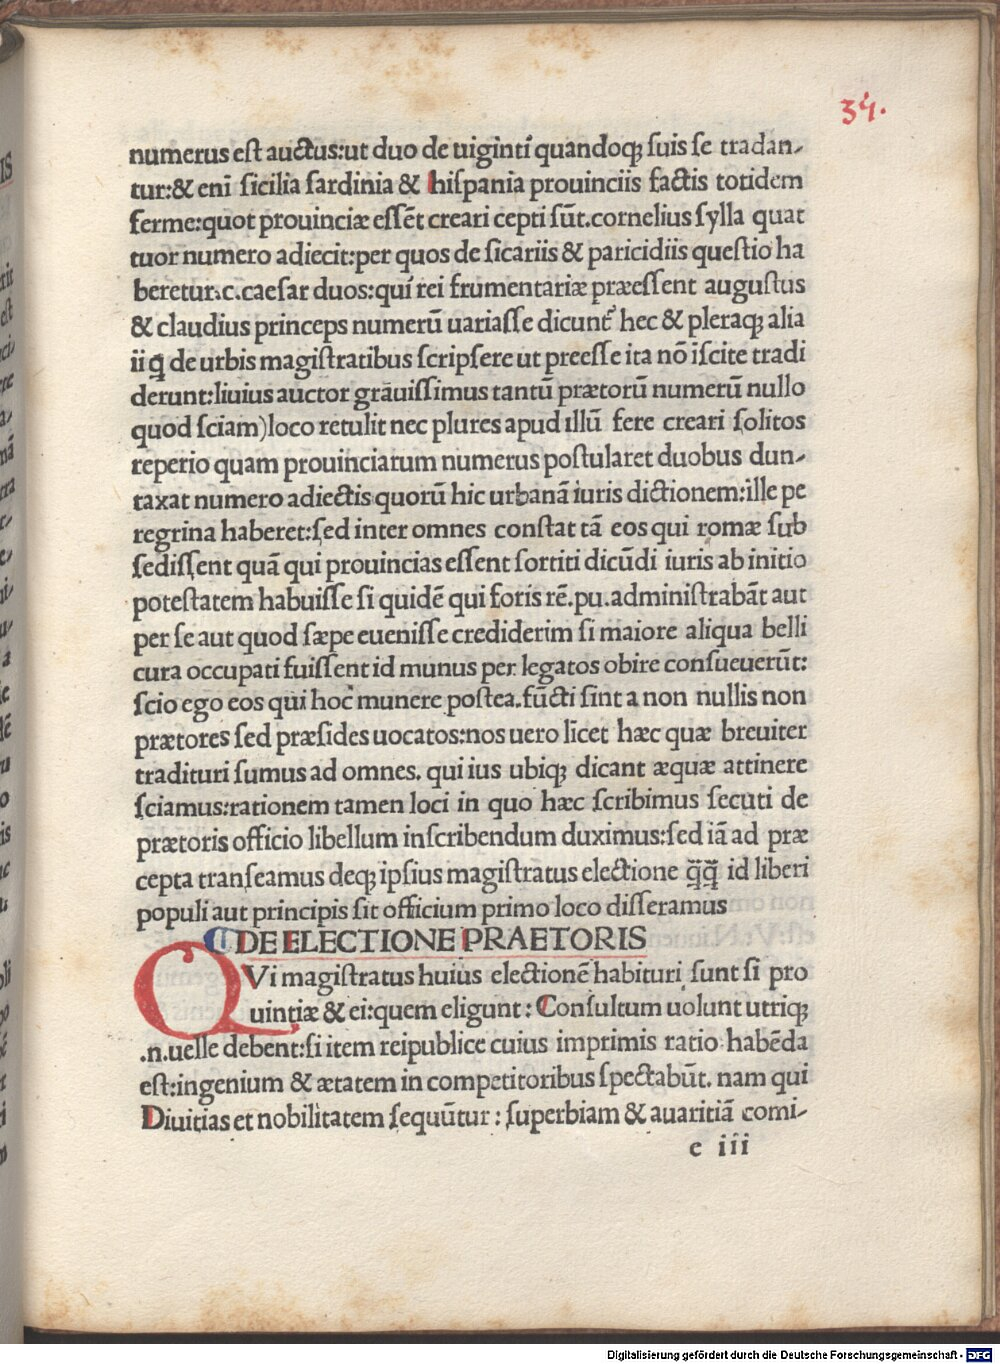 34.
numerus eſt auctus:ut duo de uiginti quandoqꝫ ſuis ſe tradan-
tur:& enĩ ſicilia ſardinia & hiſpania prouinciis factis totidem
ferme:quot prouinciæ eſſẽt creari cepti ſũt.cornelius ſylla quat
tuor numero adiecit:per quos de ſicariis & paricidiis queſtio ha
beretur.c.caeſar duos:qui rei frumentariæ præeſſent auguſtus
& claudius princeps numerũ uariaſſe dicunt᷑ hec & pleraqꝫ alia
ii q̃ de urbis magiſtratibus ſcripſere ut preeſſe ita nõ iſcite tradi
derunt:liuius auctor grauiſſimus tantũ prætorũ numerũ nullo
quod ſciam)loco retulit nec plures apud illũ fere creari ſolitos
reperio quam prouinciarum numerus poſtularet duobus dun-
taxat numero adiectis quorũ hic urbanã iuris dictionem:ille pe
regrina haberet:ſed inter omnes conſtat tã eos qui romæ ſub
ſediſſent quã qui prouincias eſſent ſortiti dicũdi iuris ab initio
poteſtatem habuiſſe ſi quidẽ qui foris rẽ.pu.adminiſtrabãt aut
per ſe aut quod ſæpe eueniſſe crediderim ſi maiore aliqua belli
cura occupati fuiſſent id munus per legatos obire conſueuerũt:
ſcio ego eos qui hoc munere poſtea.fũcti ſint a non nullis non
prætores ſed præſides uocatos:nos uero licet hæc quæ breuiter
tradituri ſumus ad omnes. qui ius ubiqꝫ dicant æquæ attinere
ſciamus:rationem tamen loci in quo hæc ſcribimus ſecuti de
prætoris officio libellum inſcribendum duximus:ſed iã ad præ
cepta tranſeamus deqꝫ ipſius magiſtratus electione q̃q̃ id liberi
populi aut principis ſit officium primo loco diſſeramus
DE ELECTIONE PRAETORIS
QVi magiſtratus huius electionẽ habituri ſunt ſi pro
uintiæ & ei:quem eligunt: Conſultum uolunt utriqꝫ
.n.uelle debent:ſi item reipublice cuius imprimis ratio habẽda
eſt:ingenium & ætatem in competitoribus ſpectabũt. nam qui
Diuitias et nobilitatem ſequũtur: ſuperbiam & auaritiã comi-
e iii
Digitalisierung gefördert durch die Deutsche Forschungsgemeinschaft - DFG